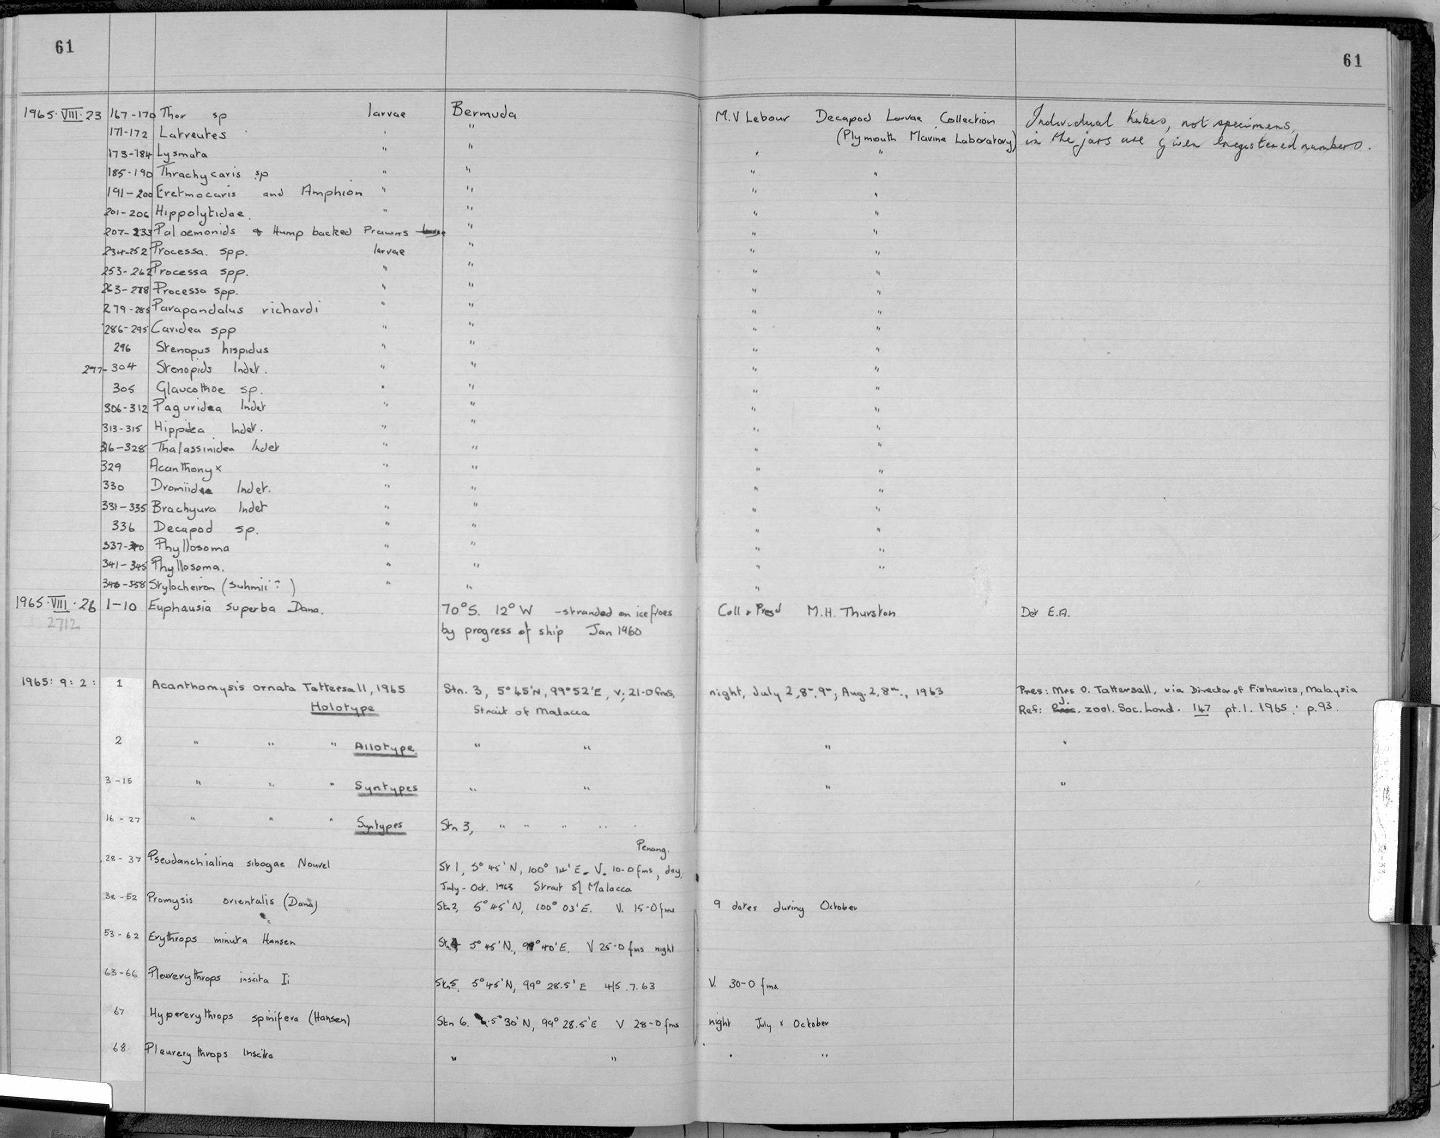 61
61
1965·VIII·23 167-170 Thor sp larvae Bermuda M.V Lebour Decapod Larvae Collection Individual tubes, not specimens,
171-172 Latreutes " " (Plymouth Marine Laboratory) in the jars are given registered numbers.
173-184 Lysmata " " " "
185-190 Thrachycaris sp " " " "
191-200 Eretmocaris and Amphion " " " "
201-206 Hippolytidae. " " " "
207-233 Palaemonids & Hump backed Prawns " " "
234-252 Processa. spp. larvae " " "
253-262 Processa spp. " " " "
263-278 Processa spp. " " " "
279-285 Parapandalus richardi " " " "
286-295 Caridea spp " " " "
296 Stenopus hispidus " " " "
297-304 Stenopids Indet. " " " "
305 Glaucothoe sp. " " " "
306-312 Paguridea Indet " " " "
313-315 Hippidea Indet. " " " "
316-328 Thalassinidea Indet " " " "
329 Acanthonyx " " " "
330 Dromiidea Indet. " " " "
331-335 Brachyura Indet " " " "
336 Decapod sp. " " "
337-340 Phyllosoma " " " "
341-345 Phyllosoma. " " " "
346-358 Stylocheiron (Suhmii?) " " "
1965·VIII·26 1-10 Euphausia superba Dana. 70°S. 12°W -stranded on icefloes Coll & Pres'd M.H. Thurston Det E.A.
2712 by progress of ship Jan 1960
1965: 9: 2: 1 Acanthomysis ornata Tattersall, 1965 Stn. 3, 5°45'N, 99°52'E, V; 21-0fms, night, July 2, 8-, 9-; Aug. 2, 8-., 1963 Pres: Mrs O. Tattersall, via Director of Fisheries, Malaysia
Holotype Strait of Malacca Ref: J. zool. Soc. Lond. 147 pt.1. 1965: p.93.
2 " " " Allotype " " " "
3-15 " " " Syntypes " " " "
16-27 " " " Syntypes Stn 3, " " " " "
Penang.
28-37 Pseudanchialina sibogae Nouvel St 1, 5°45'N, 100°14'E. V. 10-0fms, day,
July-Oct. 1963 Strait of Malacca
38-52 Promysis orientalis (Dana) Stn2, 5°45'N, 100°03'E. V. 15-0fms 9 dates during October
53-62 Erythrops minuta Hansen Stn4 5°45'N, 99°40'E. V 25-0fms night
63-66 Pleurerythrops inscita Ii Stn5, 5°45'N, 99°28.5'E 4/5.7.63 V. 30-0fms
67 Hypererythrops spinifera (Hansen) Stn 6. 5°30'N, 99°28.5'E V 28-0fms night July & October
68 Pleurerythrops inscita " " " "